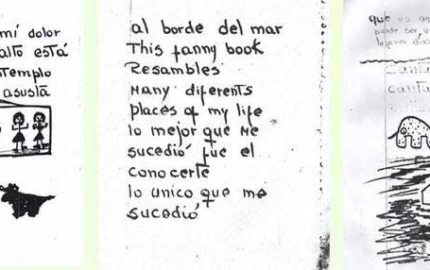 mi dolor
alto está
templo
asusta
al borde del mar
This fanny book
Resambles
Many diferents
places of my life
lo mejor que me
sucedió fue el
conocerte
lo unico que me
sucedió
que es
puede ser